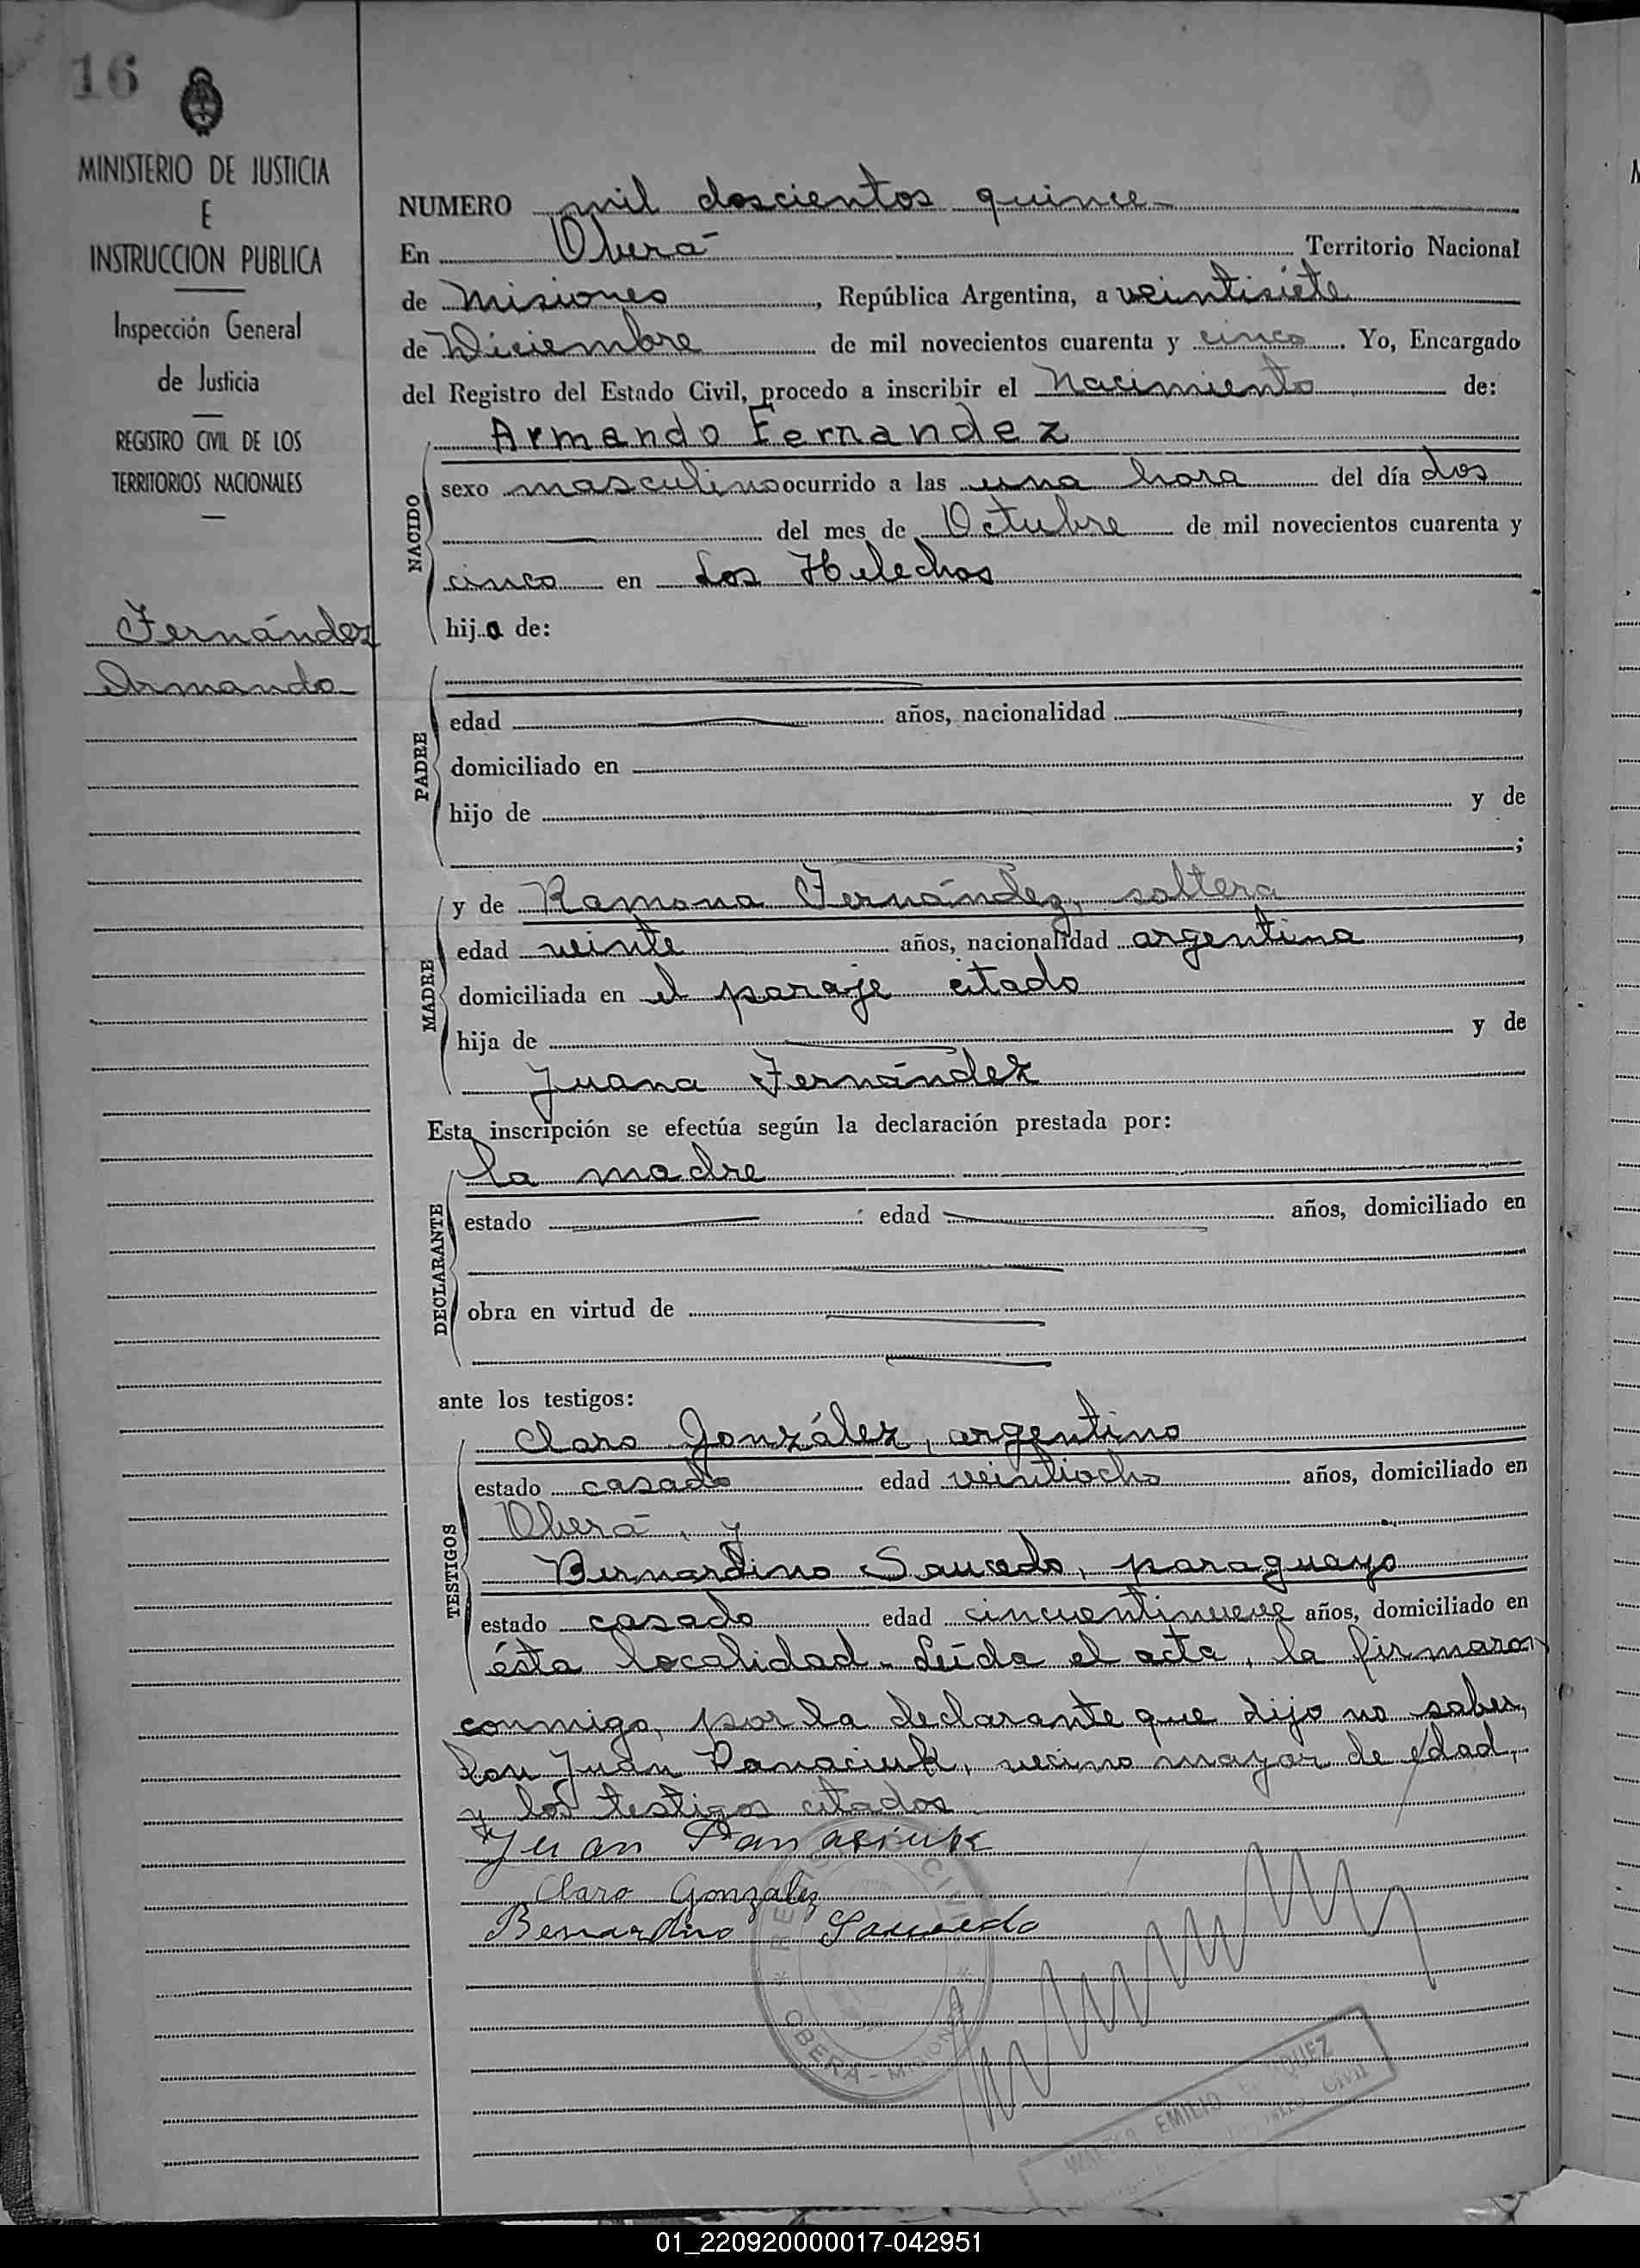 16
MINISTERIO DE JUSTICIA
E
INSTRUCCION PUBLICA
Inspección General
de Justicia
REGISTRO CIVIL DE LOS
TERRITORIOS NACIONALES
Fernández
Armando
NUMERO mil doscientos quince
En Oberá Territorio Nacional
de Misiones, República Argentina, a veintisiete
de Diciembre de mil novecientos cuarenta y cinco. Yo, Encargado
del Registro del Estado Civil, procedo a inscribir el Nacimiento de:
Armando Fernandez
NACIDO
sexo masculino ocurrido a las una hora del día dos
del mes de Octubre de mil novecientos cuarenta y
cinco en Los Helechos
hijo de:
PADRE
edad años, nacionalidad ,
domiciliado en
hijo de y de
;
MADRE
y de Ramona Fernández, soltera
edad veinte años, nacionalidad argentina,
domiciliada en el paraje citado
hija de y de
Juana Fernández
Esta inscripción se efectúa según la declaración prestada por:
DECLARANTE
la madre
estado edad años, domiciliado en
obra en virtud de
ante los testigos:
TESTIGOS
Claro González, argentino
estado casado edad veintiocho años, domiciliado en
Oberá, y
Bernardino Saucedo, paraguayo
estado casado edad cincuentinueve años, domiciliado en
ésta localidad - Leída el acta, la firmaron
conmigo, por la declarante que dijo no saber,
Don Juan Panasiuk, vecino mayor de edad,
y los testigos citados
Juan Panasiuk
Claro Gonzalez
Bernardino Saucedo
REGISTRO CIVIL
OBERA - MISIONES
EMILIO
CIVIL
01_220920000017-042951